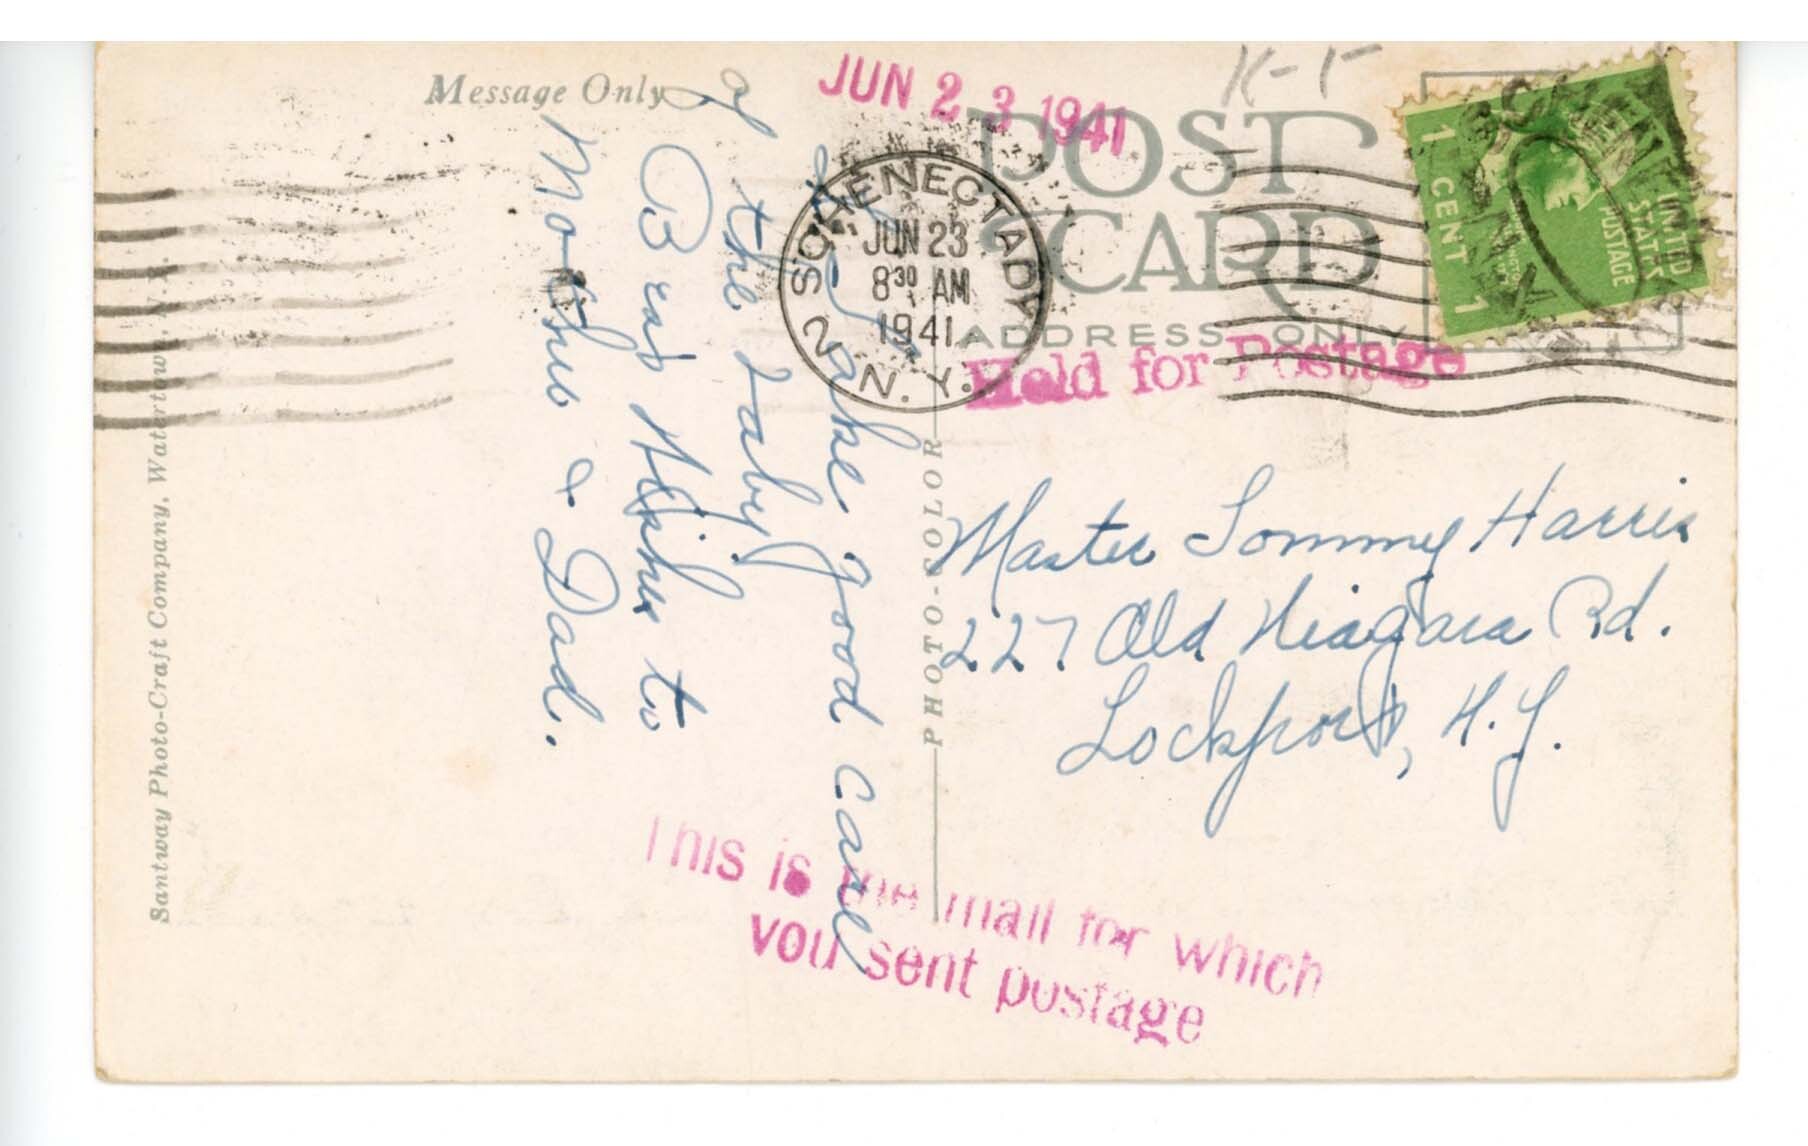 Message Only
JUN 23 1941
K-F
POST CARD
ADDRESS ONLY
SCHENECTADY
JUN 23
8 30 AM
1941
2 N.Y.
UNITED STATES POSTAGE
1 CENT 1
Held for Postage
Take good care
of the baby
Bras to
Mother & Dad.
PHOTO-COLOR
Santway Photo-Craft Company, Watertown, N.Y.
Master Tommy Harris
227 Old Niagara Rd.
Lockport, N.Y.
This is the mail for which
you sent postage